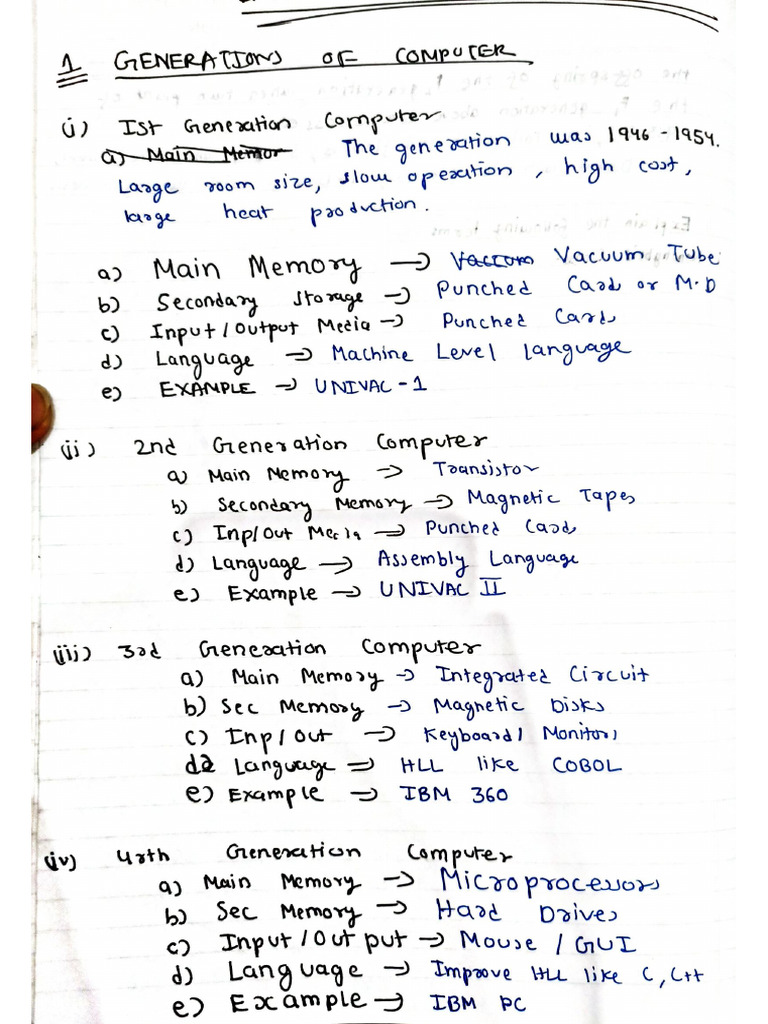 1 GENERATIONS OF COMPUTER
(i) Ist Generation Computer
a) Main Memor The generation was 1946 - 1954.
Large room size, slow operation, high cost,
large heat production.
a) Main Memory → Vaccum Vacuum Tube
b) Secondary Storage → Punched Card or M.D
c) Input/Output Media → Punched Card
d) Language → Machine Level language
e) EXAMPLE → UNIVAC-1
(ii) 2nd Generation Computer
a) Main Memory → Transistor
b) Secondary Memory → Magnetic Tapes
c) Inp/Out Media → Punched Card
d) Language → Assembly Language
e) Example → UNIVAC II
(iii) 3rd Generation Computer
a) Main Memory → Integrated Circuit
b) Sec Memory → Magnetic Disks
c) Inp/Out → Keyboard/ Monitors
d) Language → HLL like COBOL
e) Example → IBM 360
(iv) 4rth Generation Computer
a) Main Memory → Microprocessors
b) Sec Memory → Hard Drives
c) Input/Output → Mouse / GUI
d) Language → Improve HLL like C, C++
e) Example → IBM PC